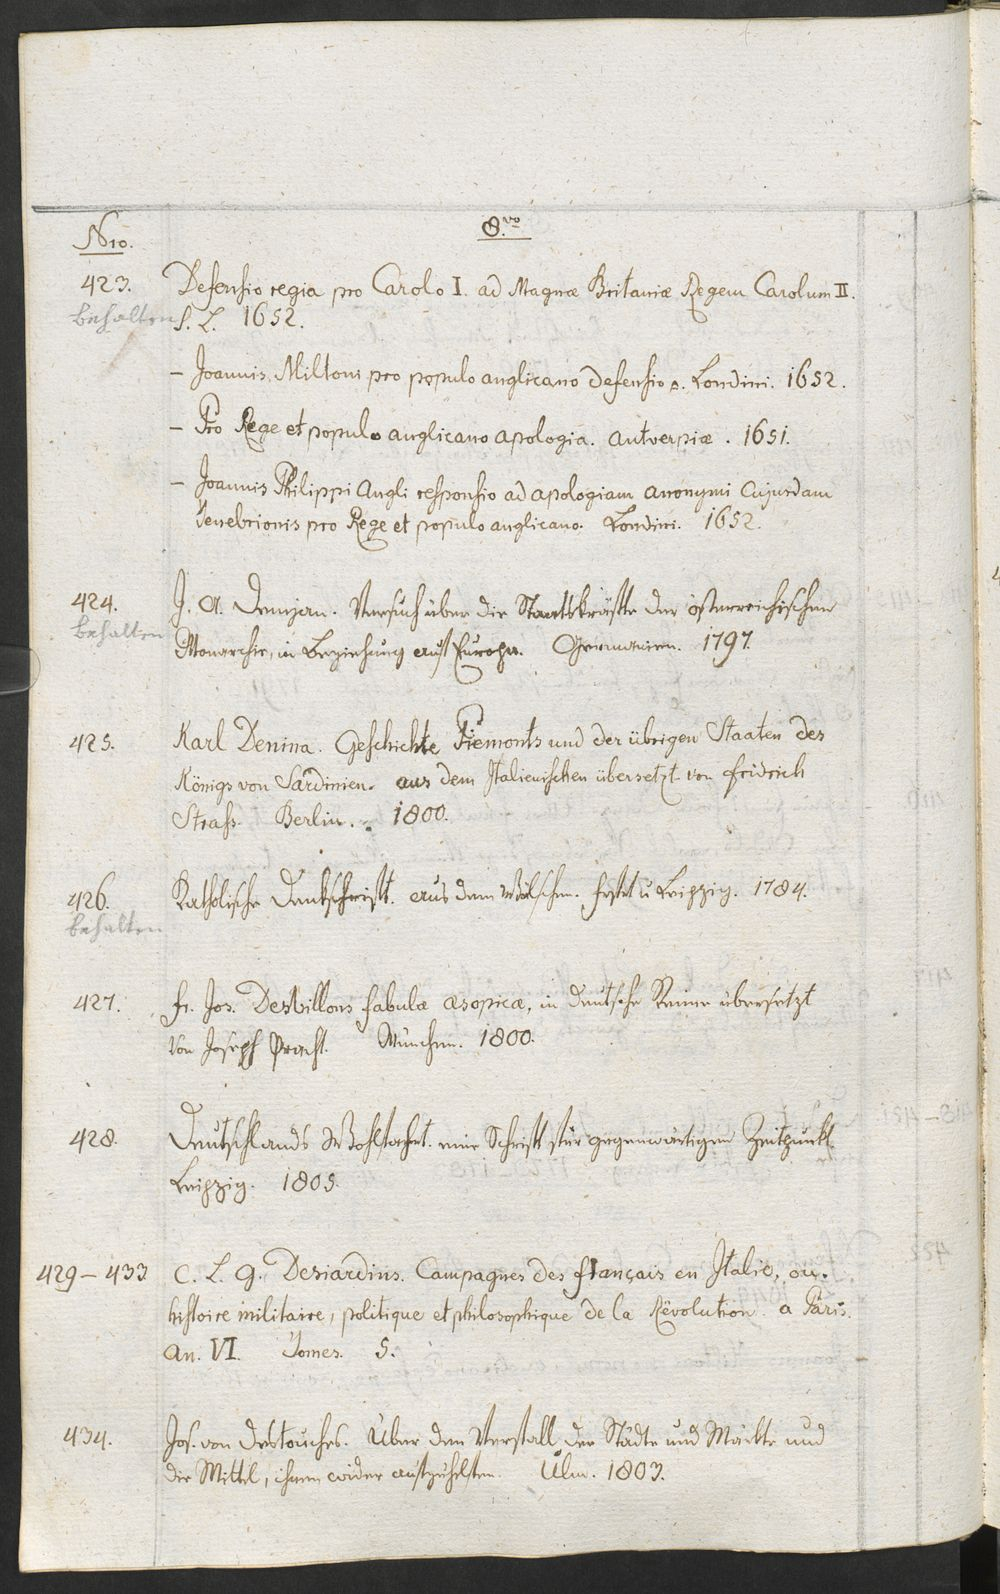 8.vo
Nro.
423. Defensio regia pro Carolo I. ad Magnæ Britaniæ Regem Carolum II.
behalten S. L. 1652.
– Joannis Miltoni pro populo anglicano defensio. Londini. 1652.
– Pro Rege et populo anglicano apologia. Antverpiæ. 1651.
– Joannis Philippi Angli responsio ad apologiam anonymi cujusdam
tenebrionis pro Rege et populo anglicano. Londini. 1652.
424. J. A. Demjan. Versuch über die Staatskräfte der österreichischen
behalten Monarchie, in Beziehung auf Europa. Germanien. 1797.
425. Karl Denina. Geschichte Piemonts und der übrigen Staaten des
Königs von Sardinien. aus dem Italienischen übersetzt von Fridrich
Strass. Berlin. 1800.
426. Katholische Denkschrift. aus dem Wälschen. u Leipzig. 1784.
behalten
427. Fr. Jos. Desbillons fabulæ æsopicæ, in deutsche Reime übersetzt
von Joseph Pracht. München. 1800.
428. Deutschlands Wohlfahrt. eine Schrift für gegenwärtigen Zeitpunkt.
Leipzig. 1805.
429–433 C. L. G. Desiardins. Campagnes des français en Italie, ou
histoire militaire, politique et philosophique de la Révolution. a Paris.
An. VI. Tomes. 5.
434. Jos. von Destouches. Über den Verfall der Städte und Märkte und
die Mittel, ihnen wider aufzuhelfen. Ulm. 1803.